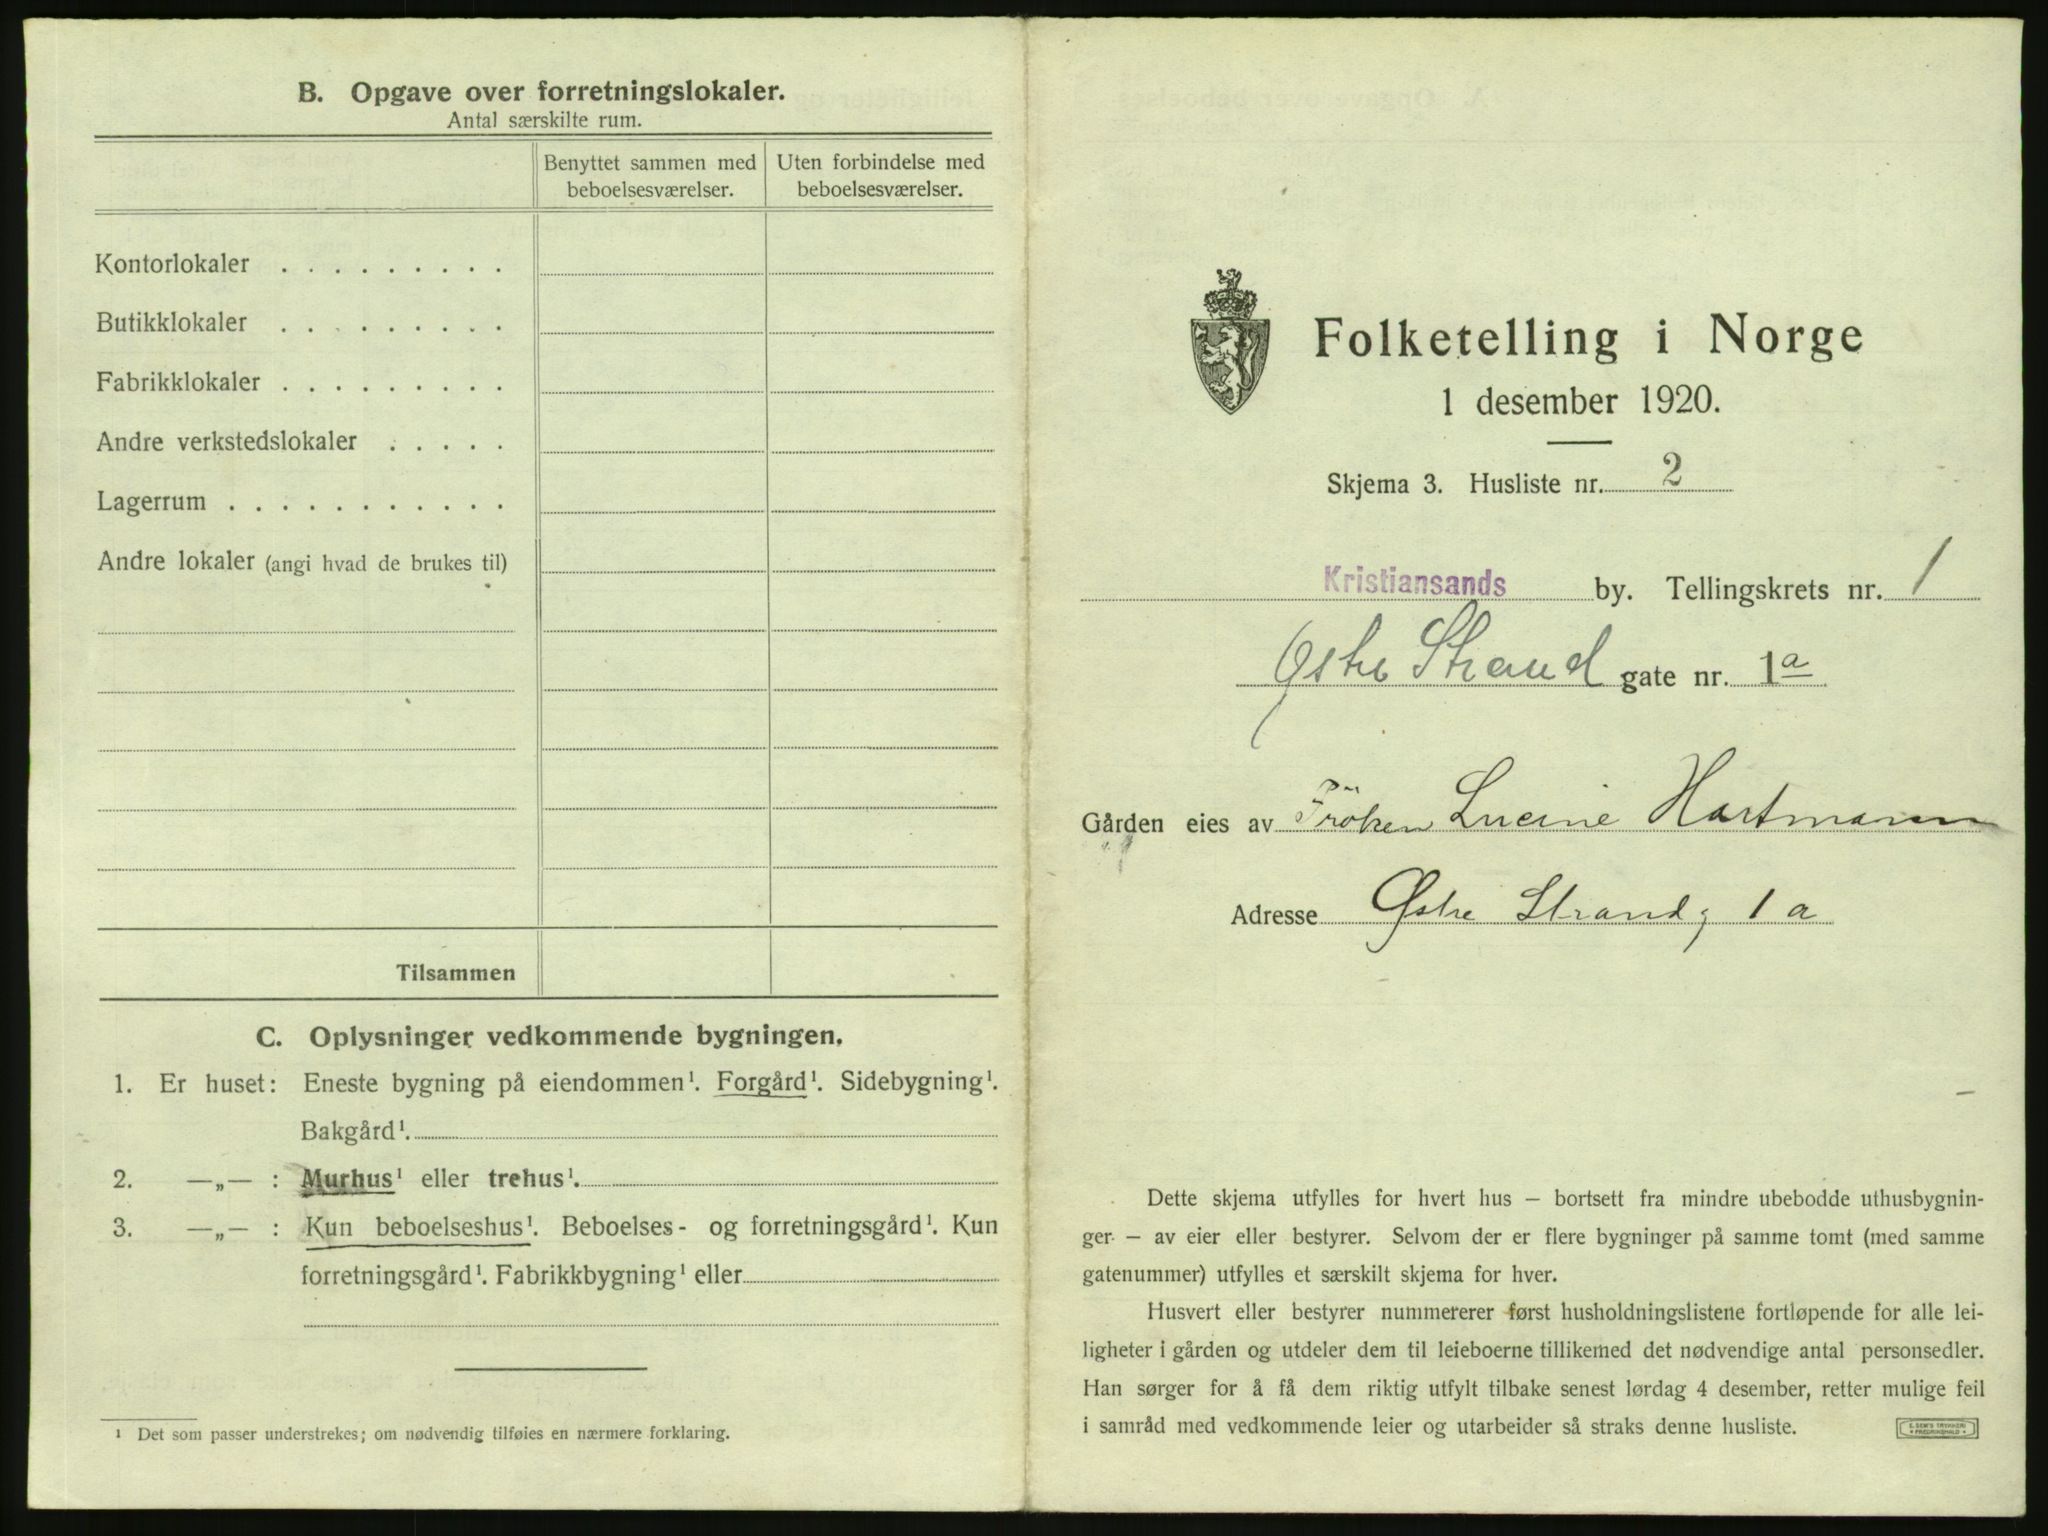 B. Opgave over forretningslokaler.
Antal særskilte rum.
Benyttet sammen med beboelsesværelser.
Uten forbindelse med beboelsesværelser.
Kontorlokaler . . . . . . . . .
Butikklokaler . . . . . . . . .
Fabrikklokaler . . . . . . . . .
Andre verkstedslokaler . . . . .
Lagerrum . . . . . . . . . . .
Andre lokaler (angi hvad de brukes til)
Tilsammen
C. Oplysninger vedkommende bygningen.
1. Er huset: Eneste bygning på eiendommen¹. Forgård¹. Sidebygning¹.
Bakgård¹.
2. —„— : Murhus¹ eller trehus¹.
3. —„— : Kun beboelseshus¹. Beboelses- og forretningsgård¹. Kun
forretningsgård¹. Fabrikkbygning¹ eller
¹ Det som passer understrekes; om nødvendig tilføies en nærmere forklaring.
Folketelling i Norge
1 desember 1920.
Skjema 3. Husliste nr. 2
Kristiansands by. Tellingskrets nr. 1
Østre Strand gate nr. 1a
Gården eies av Fröken Lucine Hartmann
Adresse Østre Strandg 1 a
Dette skjema utfylles for hvert hus — bortsett fra mindre ubebodde uthusbygnin-
ger — av eier eller bestyrer. Selvom der er flere bygninger på samme tomt (med samme
gatenummer) utfylles et særskilt skjema for hver.
Husvert eller bestyrer nummererer først husholdningslistene fortløpende for alle lei-
ligheter i gården og utdeler dem til leieboerne tillikemed det nødvendige antal personsedler.
Han sørger for å få dem riktig utfylt tilbake senest lørdag 4 desember, retter mulige feil
i samråd med vedkommende leier og utarbeider så straks denne husliste.
E. SEM'S TRYKKERI
• FREDRIKSHALD •